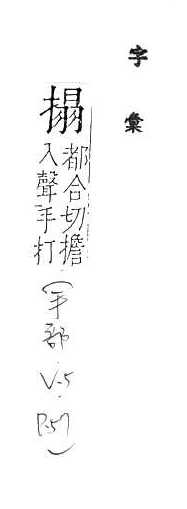 字彙
搨
都合切擔
入聲手打
(手部
V.5
P.51)